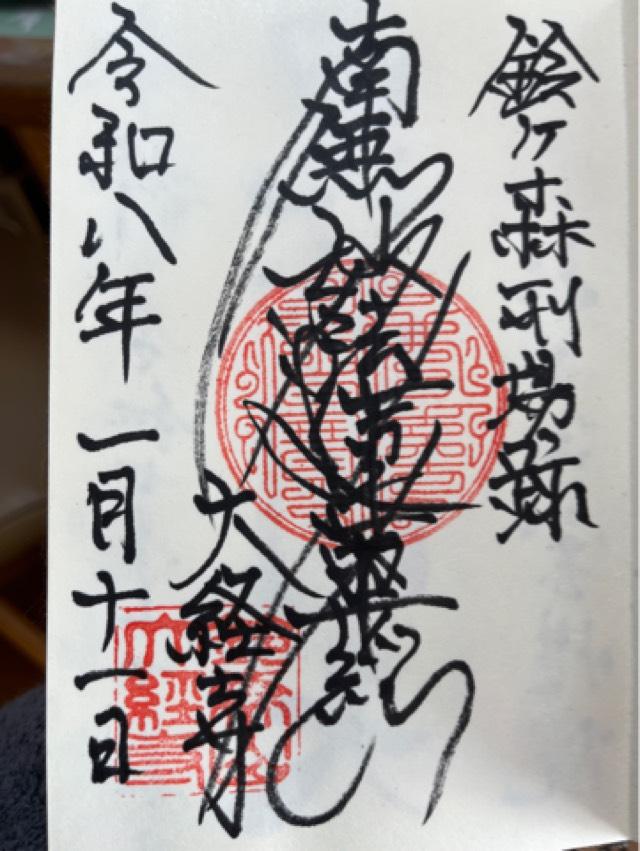 鈴ヶ森刑場跡
南無妙法蓮華経
大経寺
令和八年 一月十一日